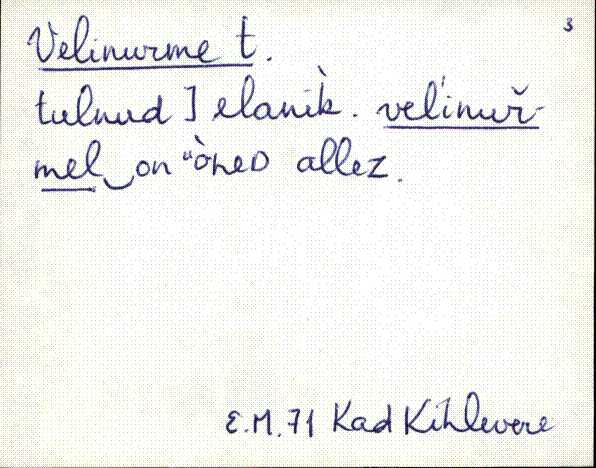 3
Velinurme t.
tulnud ] elanìk. veĺinuř-
mel‿on "òneD allez.
E.M. 71 Kad Kihlevere